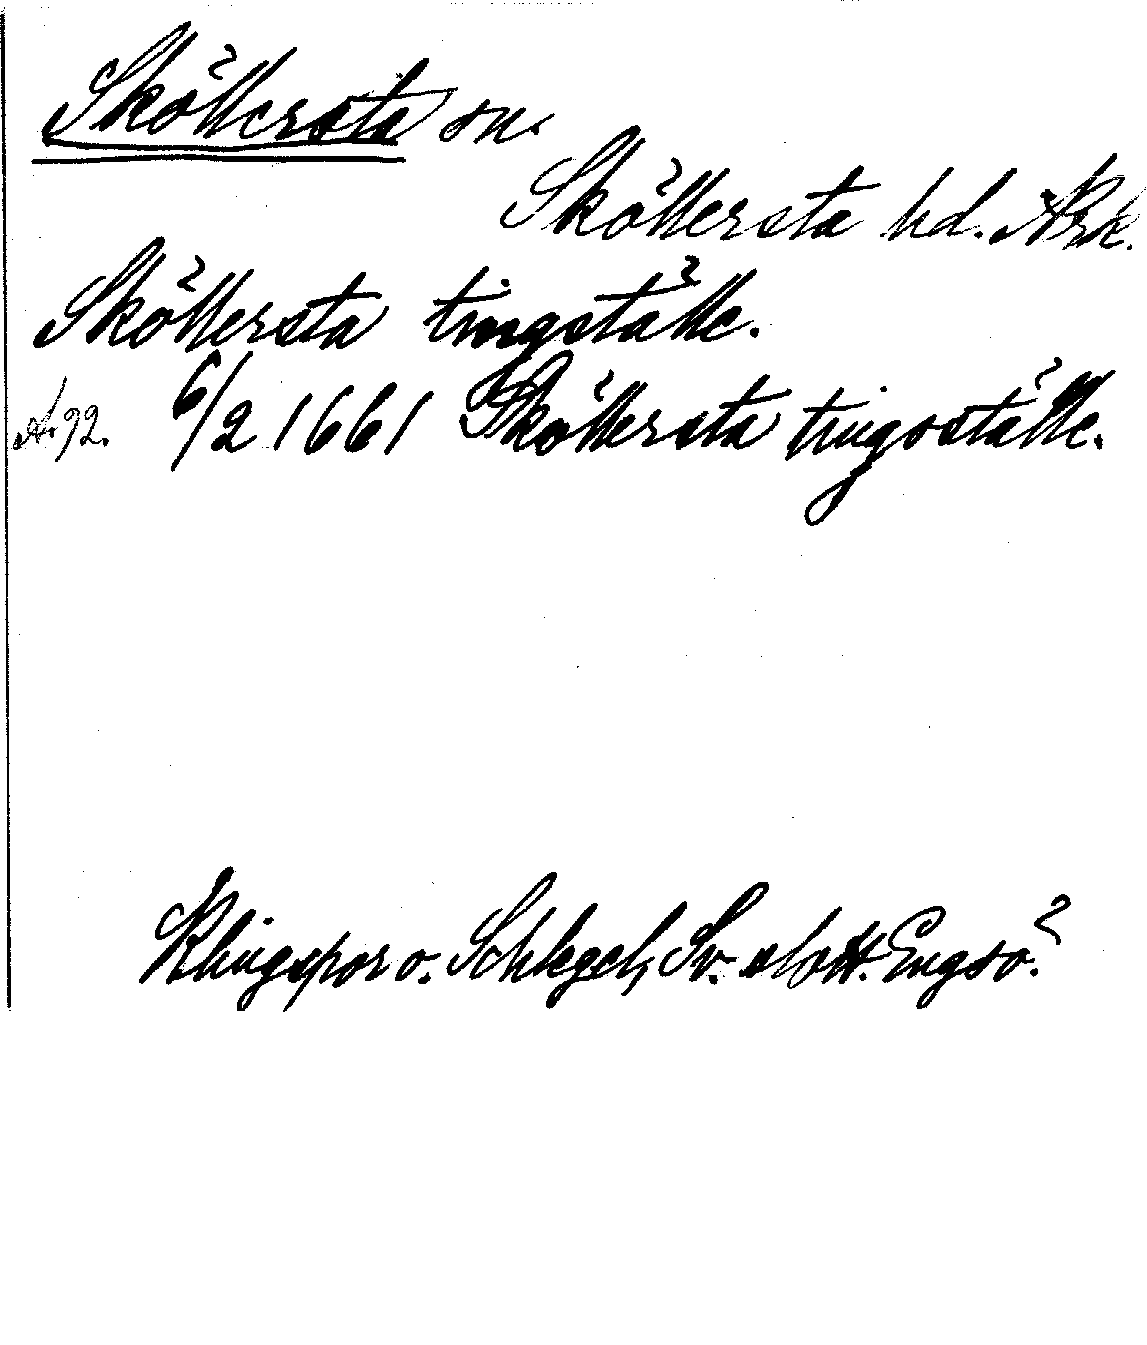 Sköllersta sn.
Sköllersta hd. Nrk.
Sköllersta tingställe.
A. 92. 6/2 1661 Sköllersta tingställe.
Klingspor o. Schlegel, Sv. slott. Engsö.